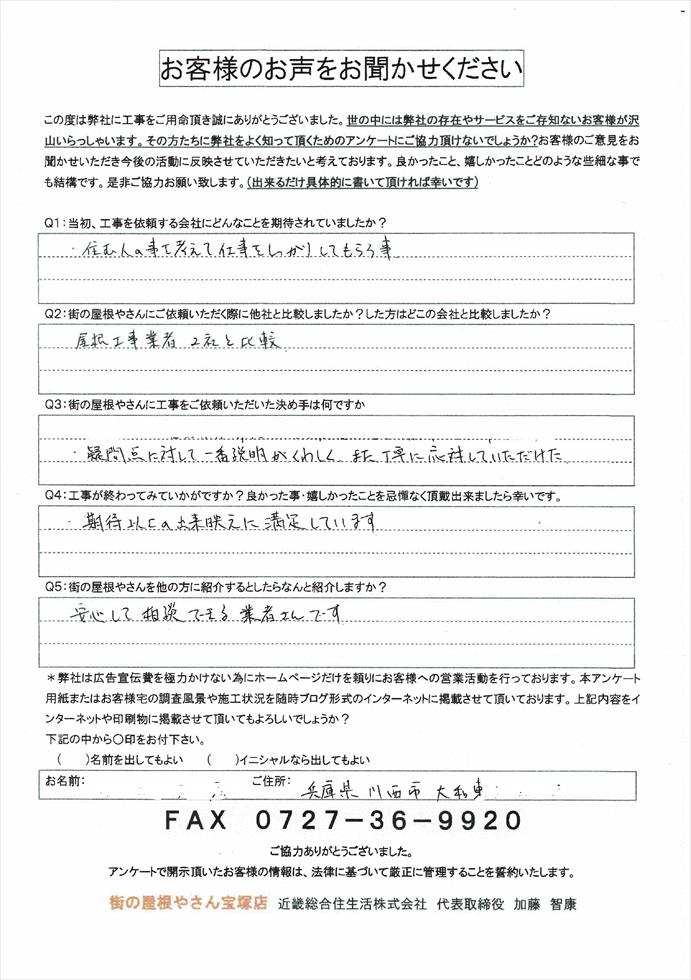 お客様のお声をお聞かせください
この度は弊社に工事をご用命頂き誠にありがとうございました。世の中には弊社の存在やサービスをご存知ないお客様が沢
山いらっしゃいます。その方たちに弊社をよく知って頂くためのアンケートにご協力頂けないでしょうか?お客様のご意見をお
聞かせいただき今後の活動に反映させていただきたいと考えております。良かったこと、嬉しかったことどのような些細な事で
も結構です。是非ご協力お願い致します。(出来るだけ具体的に書いて頂ければ幸いです)
Q1:当初、工事を依頼する会社にどんなことを期待されていましたか?
・住む人の事を考えて仕事をしっかりしてもらう事
Q2:街の屋根やさんにご依頼いただく際に他社と比較しましたか?した方はどこの会社と比較しましたか?
屋根工事業者 2社と比較
Q3:街の屋根やさんに工事をご依頼いただいた決め手は何ですか
・疑問点に対して一番説明がくわしく、また丁寧に応対していただけた
Q4:工事が終わってみていかがですか?良かった事・嬉しかったことを忌憚なく頂戴出来ましたら幸いです。
・期待以上の出来映えに満足しています
Q5:街の屋根やさんを他の方に紹介するとしたらなんと紹介しますか?
安心して相談できる業者さんです
*弊社は広告宣伝費を極力かけない為にホームページだけを頼りにお客様への営業活動を行っております。本アンケート
用紙またはお客様宅の調査風景や施工状況を随時ブログ形式のインターネットに掲載させて頂いております。上記内容をイ
ンターネットや印刷物に掲載させて頂いてもよろしいでしょうか?
下記の中から○印をお付下さい。
( )名前を出してもよい ( )イニシャルなら出してもよい
お名前: ご住所: 兵庫県川西市大和東
FAX 0727-36-9920
ご協力ありがとうございました。
アンケートで開示頂いたお客様の情報は、法律に基づいて厳正に管理することを誓約いたします。
街の屋根やさん宝塚店 近畿総合住生活株式会社 代表取締役 加藤 智康